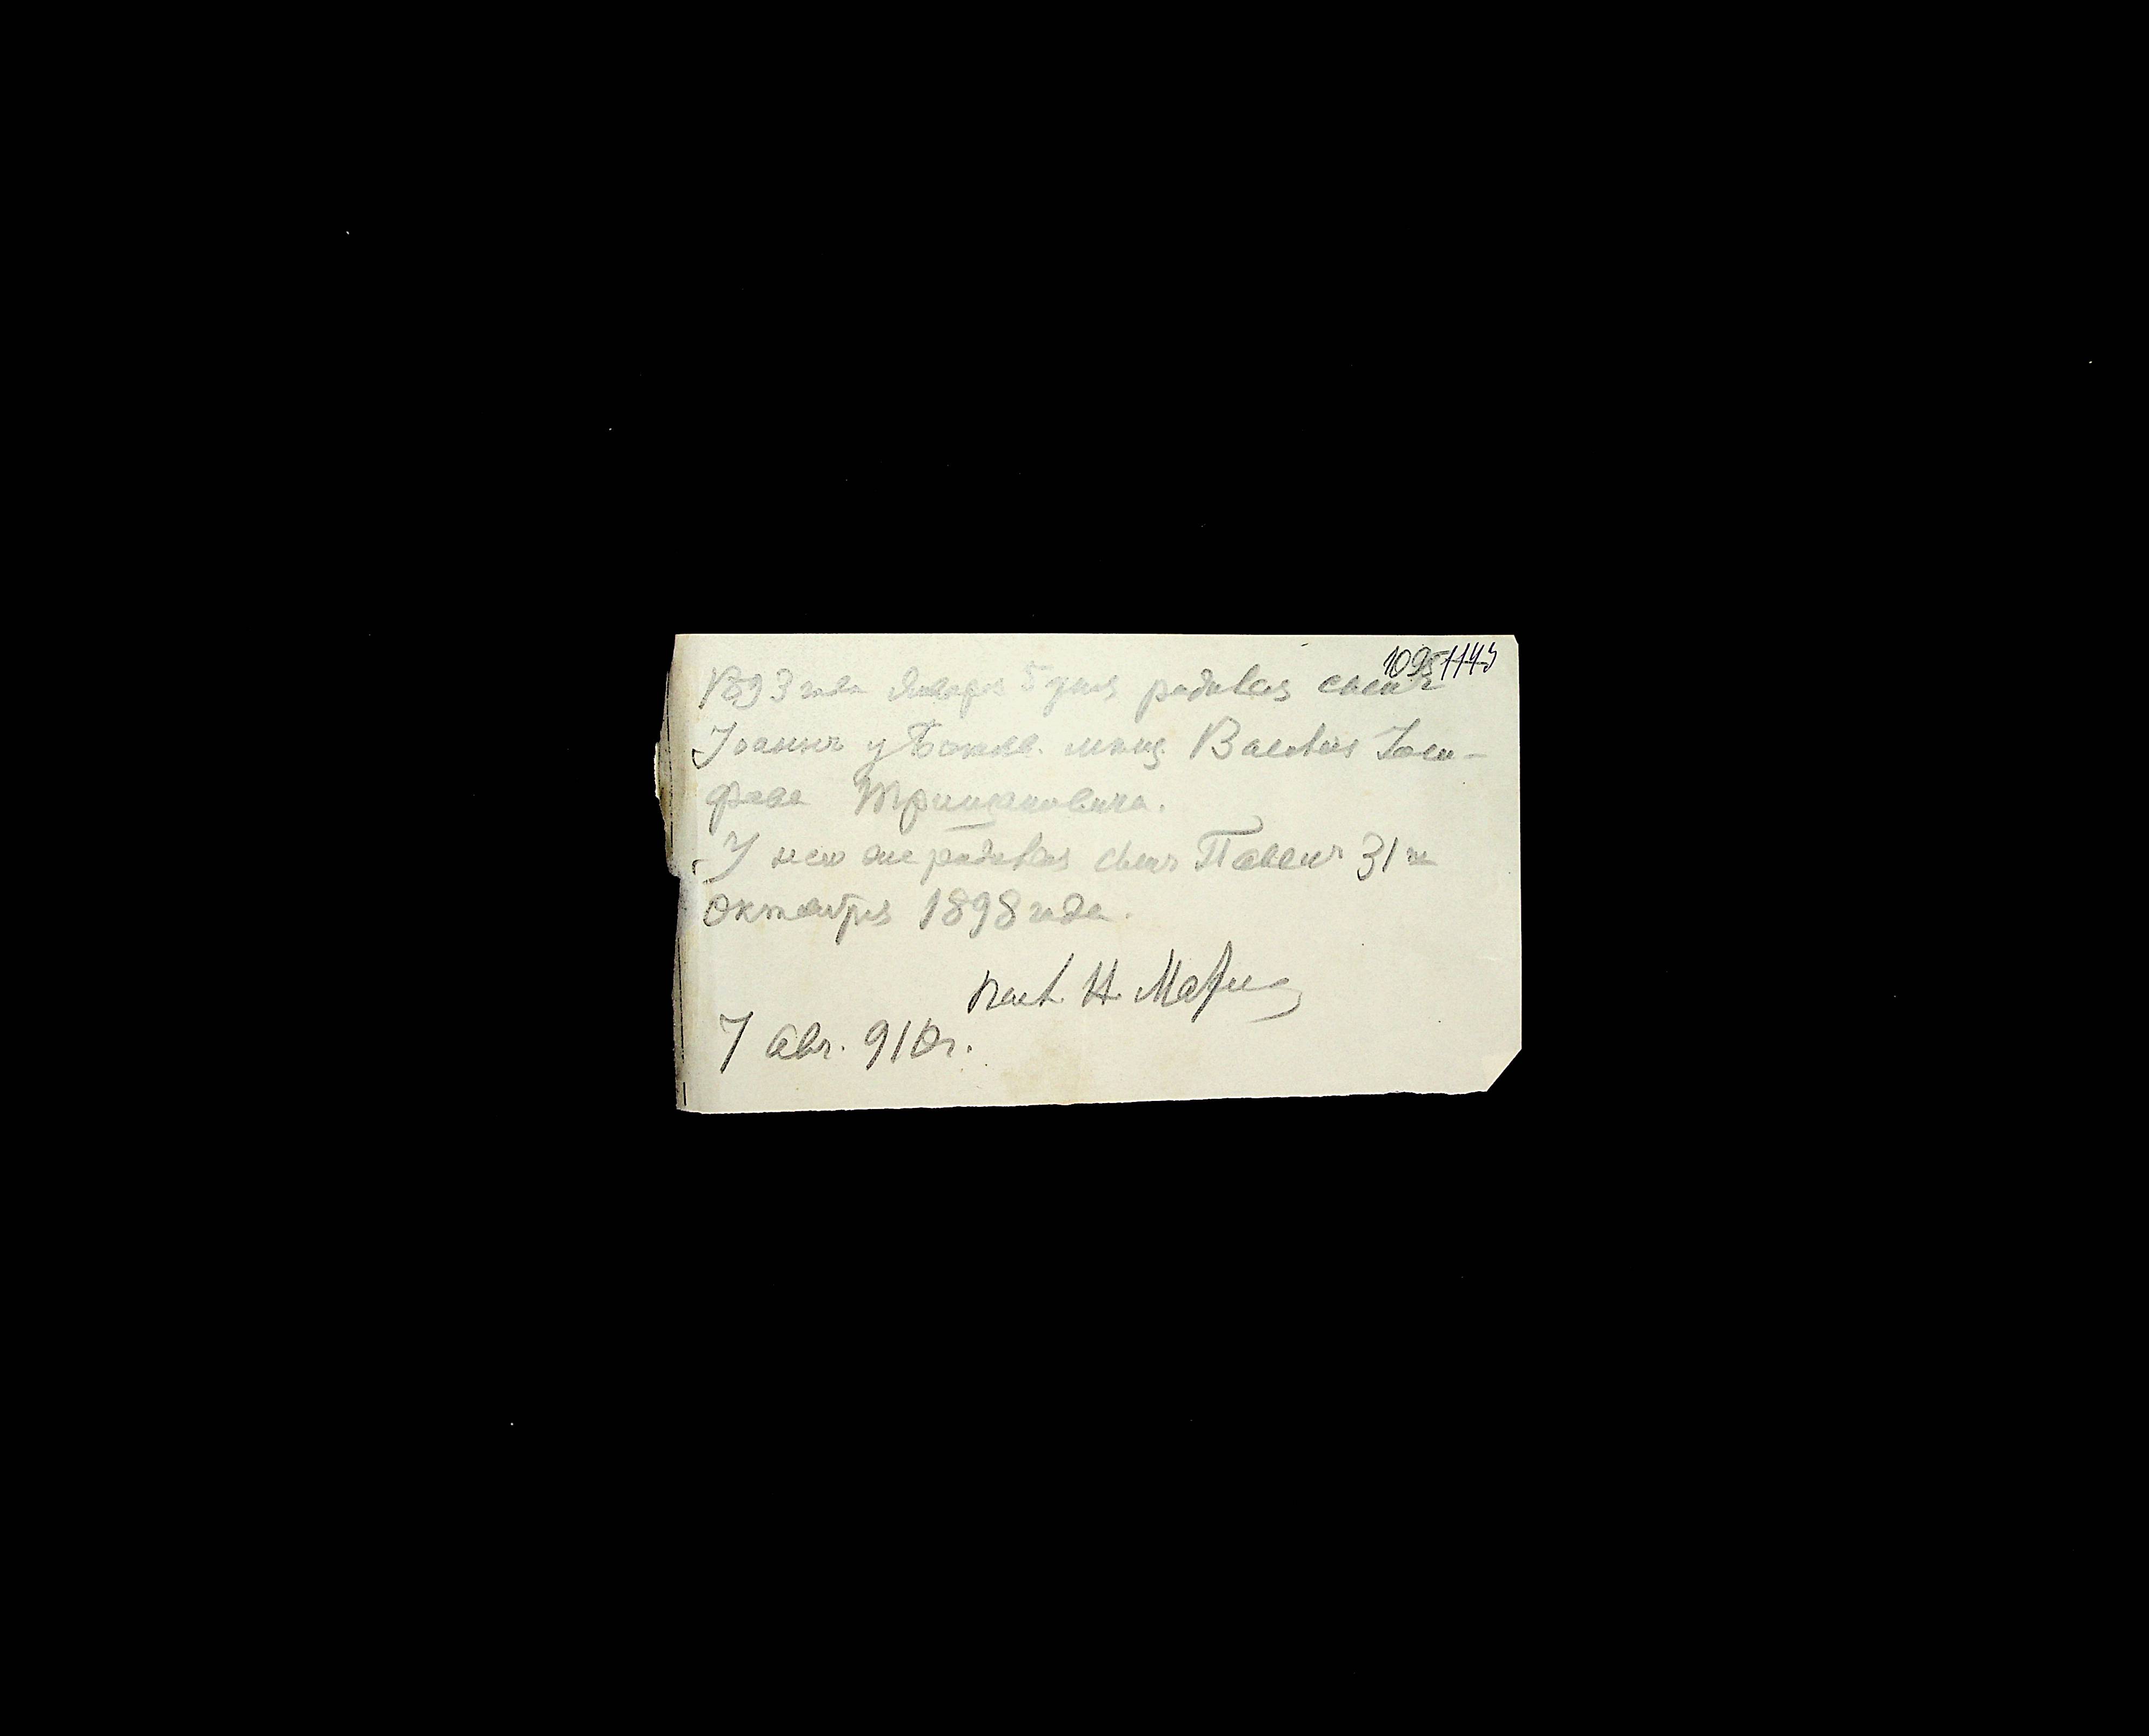 1095 1143
1893 года Января 5 дня родився сынъ
Іоаннъ у мѣщ. Василія Іоси-
фова Трищановича.
У него же родився сынъ Павелъ 31 го
Октября 1898 года.
Н.
7 авг. 910 г.